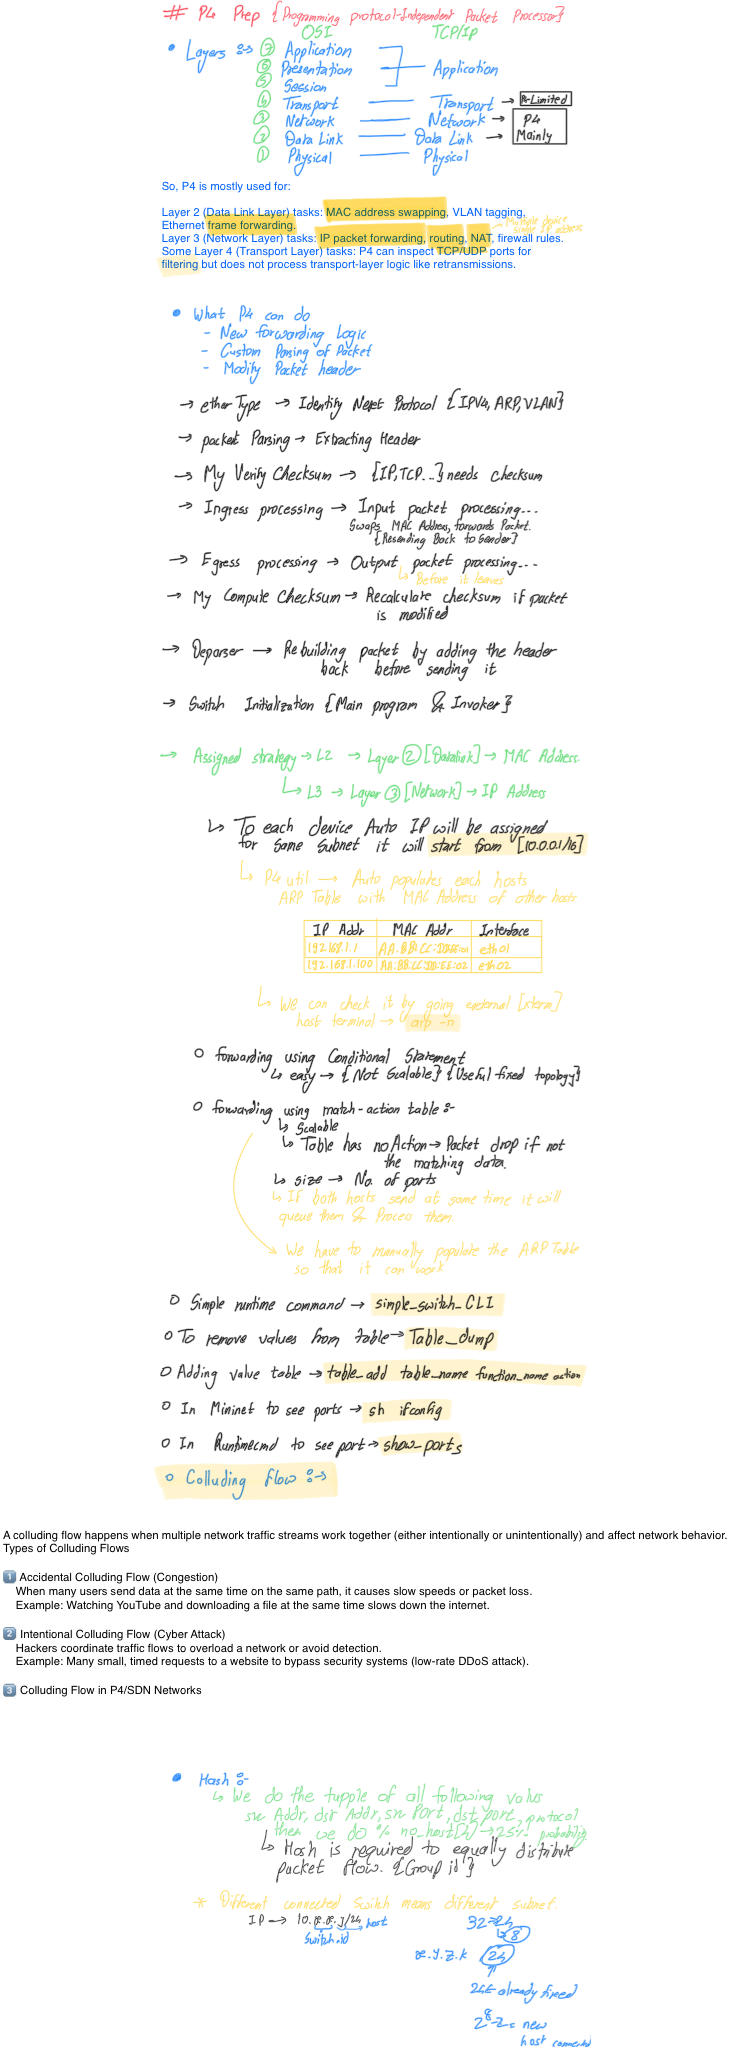 # P4 Prep {Programming protocol-Independent Packet Processor}
OSI TCP/IP
• Layers :→ ⑦ Application
⑥ Presentation Application
⑤ Session
④ Transport — Transport → P4-Limited
③ Network — Network → P4
② Data Link — Data Link → Mainly
① Physical — Physical
So, P4 is mostly used for:
Layer 2 (Data Link Layer) tasks: MAC address swapping, VLAN tagging,
Ethernet frame forwarding.
Multiple device
same IP address
Layer 3 (Network Layer) tasks: IP packet forwarding, routing, NAT, firewall rules.
Some Layer 4 (Transport Layer) tasks: P4 can inspect TCP/UDP ports for
filtering but does not process transport-layer logic like retransmissions.
• What P4 can do
- New forwarding Logic
- Custom Parsing of Packet
- Modify Packet header
→ etherType → Identify Next Protocol {IPV4, ARP, VLAN}
→ packet Parsing → Extracting Header
→ My Verify Checksum → {IP, TCP...} needs checksum
→ Ingress processing → Input packet processing...
Swaps MAC Address, forwards Packet.
{Resending Back to Sender}
→ Egress processing → Output packet processing...
↳ Before it leaves
→ My Compute Checksum → Recalculate checksum if packet
is modified
→ Deparser → Rebuilding packet by adding the header
back before sending it
→ Switch Initialization {Main program & Invoker}
→ Assigned strategy → L2 → Layer ② [Datalink] → MAC Address.
↳ L3 → Layer ③ [Network] → IP Address
↳ To each device Auto IP will be assigned
for same subnet it will start from [10.0.0.1/16]
↳ P4 util → Auto populates each hosts
ARP Table with MAC Address of other hosts
IP Addr MAC Addr Interface
192.168.1.1 AA:BB:CC:DD:EE:01 eth01
192.168.1.100 AA:BB:CC:DD:EE:02 eth02
↳ We can check it by going external [xterm]
host terminal → arp -n
○ forwarding using Conditional Statement
↳ easy → {Not Scalable} {Useful-fixed topology}
○ forwarding using match-action table :-
↳ Scalable
↳ Table has no Action → Packet drop if not
the matching data.
↳ size → No. of ports
↳ If both hosts send at same time it will
queue them & Process them.
→ We have to manually populate the ARP Table
so that it can work
○ Simple runtime command → simple_switch_CLI
○ To remove values from table → Table_dump
○ Adding value table → table_add table_name function_name action
○ In Mininet to see ports → sh ifconfig
○ In Runtimecmd to see port → show_ports
○ Colluding flow :→
A colluding flow happens when multiple network traffic streams work together (either intentionally or unintentionally) and affect network behavior.
Types of Colluding Flows
1️⃣ Accidental Colluding Flow (Congestion)
When many users send data at the same time on the same path, it causes slow speeds or packet loss.
Example: Watching YouTube and downloading a file at the same time slows down the internet.
2️⃣ Intentional Colluding Flow (Cyber Attack)
Hackers coordinate traffic flows to overload a network or avoid detection.
Example: Many small, timed requests to a website to bypass security systems (low-rate DDoS attack).
3️⃣ Colluding Flow in P4/SDN Networks
• Hash :-
↳ We do the tupple of all following valus
src Addr, dst Addr, src Port, dst port, protocol
then we do % no_host[4] → 25% probability
↳ Hash is required to equally distribute
packet flow. {Group id}
* Different connected Switch means different subnet.
IP → 10.x.x.y/24 host
switch.id
32-24
↳ 8
x.y.z.k 24
24 ← already fixed
2^8-2 = new
host connected